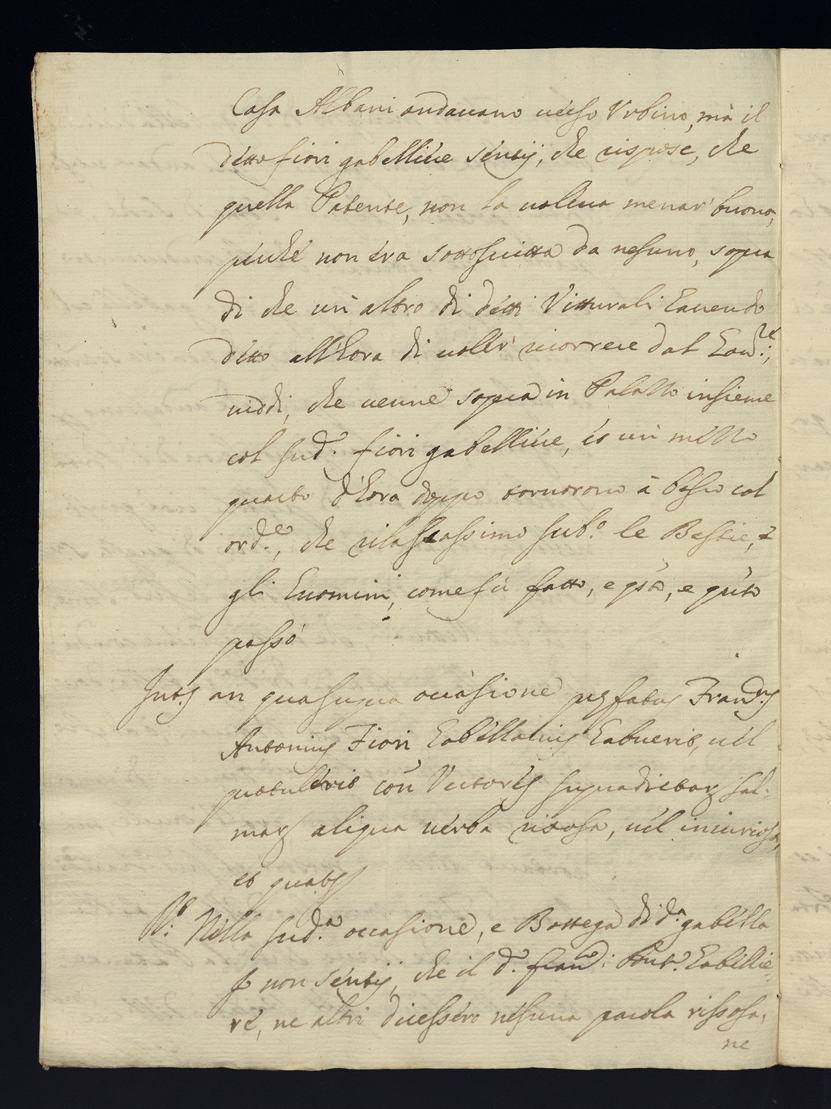 Casa Albani andauano uerso Vrbino, mà il
ditto fiori gabelliere sentij, che rispose, che
quella Patente, non la uoleua menar' buona,
perche non era sottoscritta da nesuno, sopra
di che un altro di detti Vitturali hauendo
ditto all'hora di uoller ricorrere dal
uiddi, che uenne sopra in Palazzo insieme
col sud.º fiori gabelliere, et un mezzo
quarto d'hora doppo tornorono à basso col
ord.e, che rilasciassimo sub.º le Bestie, e
gli huomini, come fù fatto, e qsto, e qsto
passò
Int.s an quasumqua occasione prefatus
Antonius Fiori Gabellarius habuerit, uel
protulerit con Vectoris
aliqua uerba rixosa, uel iniuriosa,
et quatus
R.t Nella sud.a occasione, e Bottega di d.a gabella
Io non sentij, che il d.º fran.º Ant.º Gabellie-
re, ne altri dicessero nesuna parola rissosa,
ne